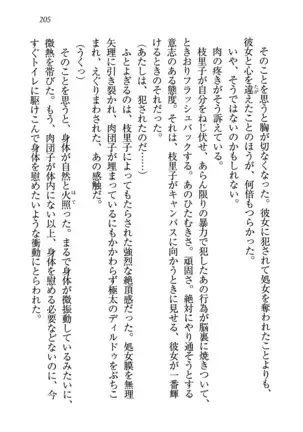 205
そのことを思うと胸が切なくなった。彼女に犯されて処女を奪われたことよりも、
彼女と心を違えたことのほうが、何倍もつらかった。
いや、そうではないのかもしれない。
肉の疼きが訴えている。
枝里子が自分をねじ伏せ、あらん限りの暴力で犯したあの行為が脳裏に焼きついて、
ときおりフラッシュバックする。あのひたむきさ。頑固さ。絶対にやり通そうとする
意志のある態度。それは、枝里子がキャンバスに向かうときに見せる、彼女が一番輝
けるときのそれだった。
（あたしは、犯されたのだ……）
ふとよぎるのは、枝里子によってもたらされた強烈な絶頂感だった。処女膜を無理
矢理に引き裂かれ、肉団子が埋まっているにもかかわらず極太のディルドゥをぶちこ
まれ、えぐりまわされた、あの感触だ。
（うくっ）
そのことを思うと、身体が自然と火照った。まるで身体が微振動しているみたいに、
微熱を帯びた。もう、肉団子が体内にない以上、身体を慰める必要などないのに、今
すぐトイレに駆けこんで身体を慰めたいような衝動にとらわれた。